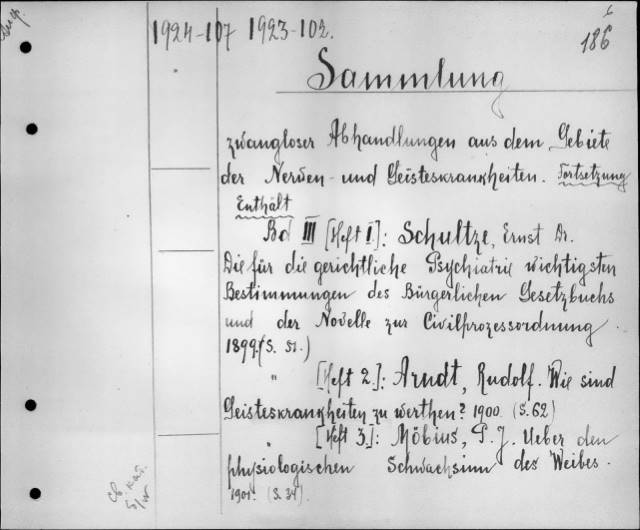 1924-107 1923-102.
186
Sammlung
zwangloser Abhandlungen aus dem Gebiete
der Nerven- und Geisteskrankheiten. Fortsetzung
Enthält
Bd III [Heft I.]: Schultze, Ernst Dr.
Die für die gerichtliche Psychiatrie wichtigsten
Bestimmungen des Bürgerlichen Gesetzbuchs
und der Novelle zur Civilprozessordnung
1899. (S. 51.)
" [Heft 2.]: Arndt, Rudolf. Wie sind
Geisteskrankheiten zu werthen? 1900. (S. 62)
" [Heft 3.]: Möbius, P. J. Ueber den
physiologischen Schwachsinn des Weibes.
1901. (S. 34).